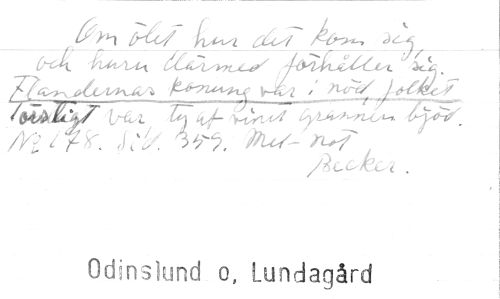 Om ölet hur det kom sig,
och huru därmed förhåller sig.
Flandernas konung var i nöd, folket
törstigt var, ty af vinet grannen bjöd.
No 178. Sid. 359. Mel-not
Becker.
Odinslund o, Lundagård